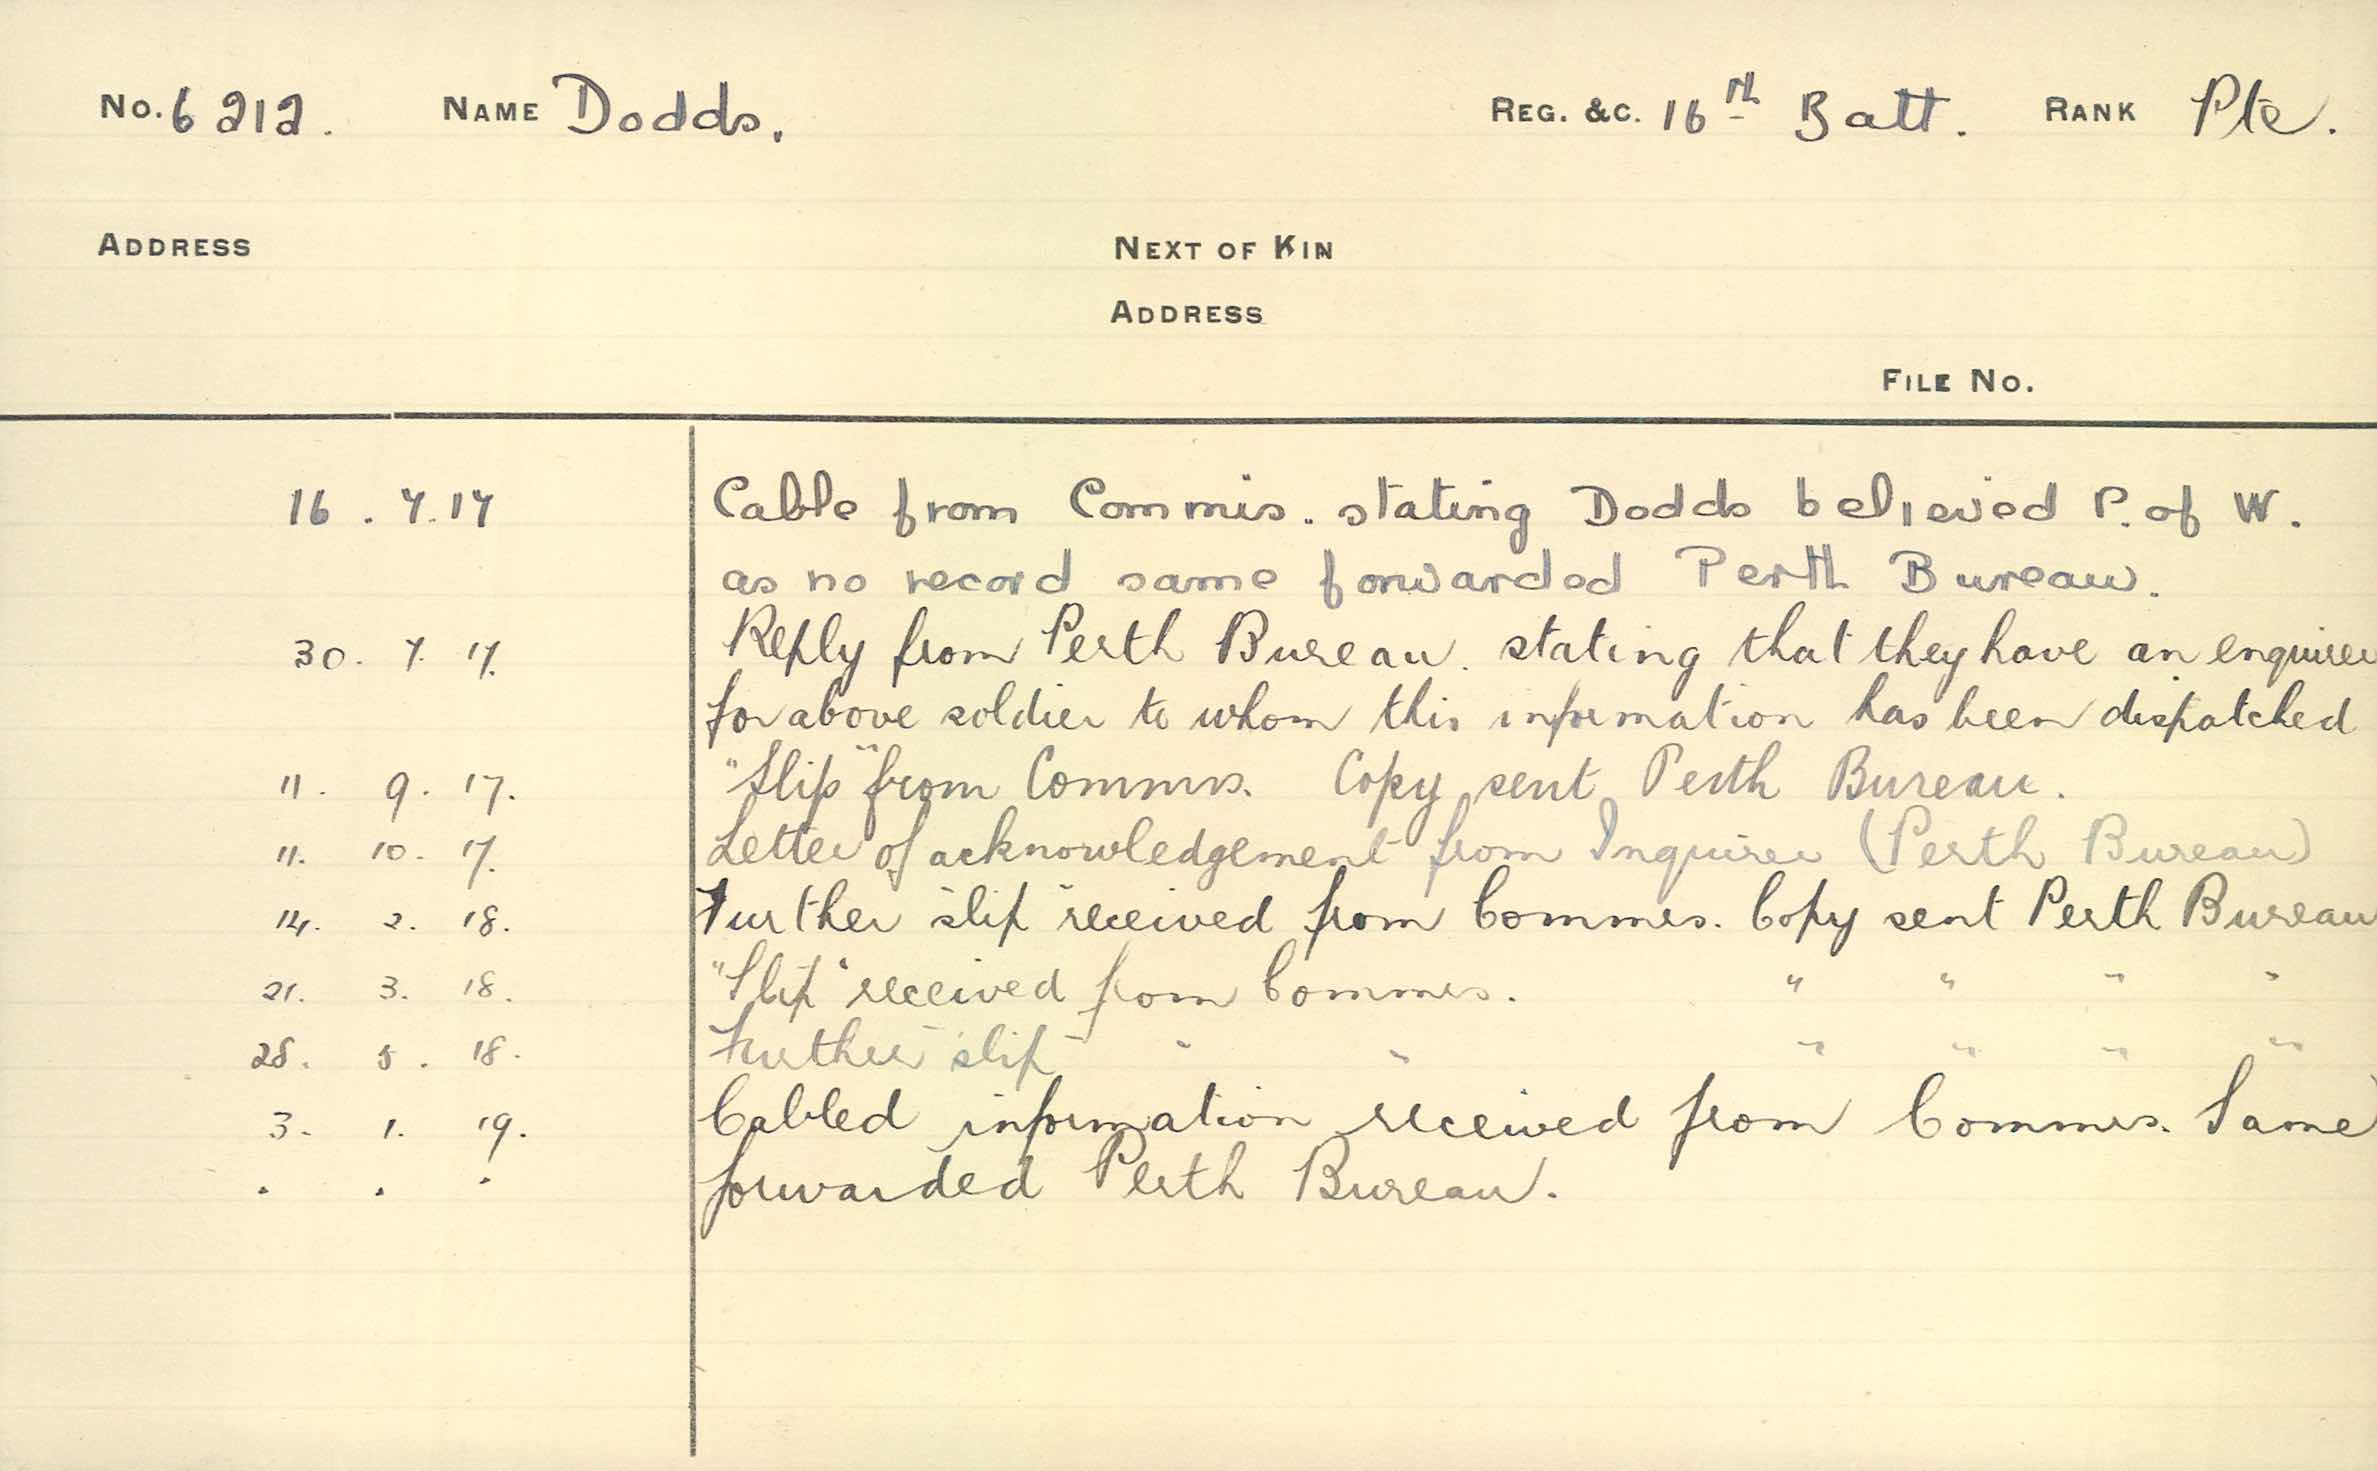 No. 6212. NAME Dodds. REG. &C. 16th Batt. RANK Pte.
ADDRESS NEXT OF KIN
ADDRESS
FILE No.
16. 7. 17 Cable from Commis. stating Dodds believed P. of W.
as no record same forwarded Perth Bureau.
30. 7. 17. Reply from Perth Bureau. stating that they have an enquirer
for above soldier to whom this information has been dispatched
11. 9. 17. "Slip" from Commrs. Copy sent Perth Bureau.
11. 10. 17. Letter of acknowledgement from Inquirer (Perth Bureau)
14. 2. 18. Further "slip" received from Commrs. Copy sent Perth Bureau
21. 3. 18. "Slip" received from Commrs. " " " "
28. 5. 18. Further "slip" " " " " " "
3. 1. 19. Cabled information received from Commrs. Same
. . . forwarded Perth Bureau.